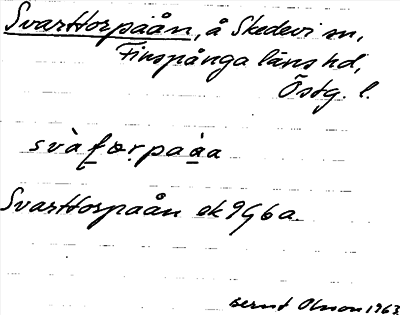 Svarttorpaån, å Skedevi sn,
Finspånga läns hd,
Östg. l.
Svarttorpaån ek 9G6a
Bernt Olsson 1963